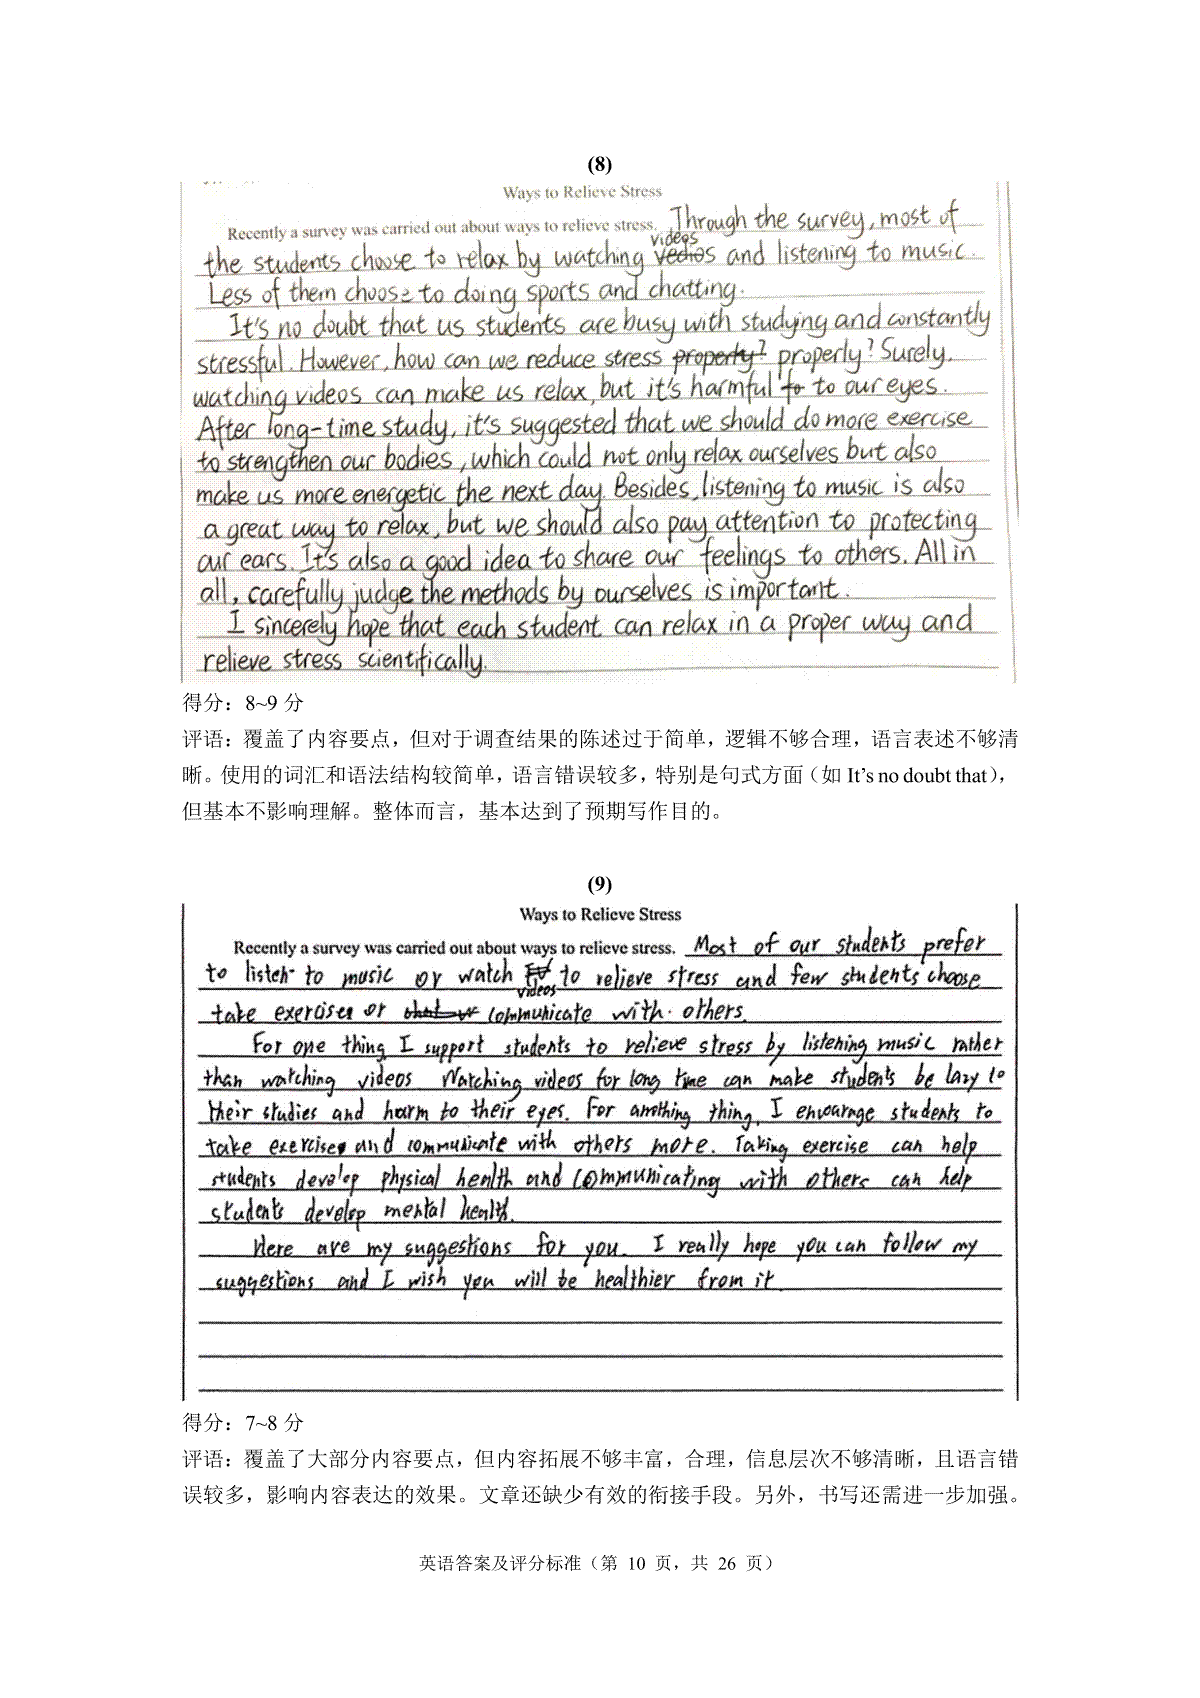 (8)
Ways to Relieve Stress
Recently a survey was carried out about ways to relieve stress. Through the survey, most of
videos
the students choose to relax by watching vedios and listening to music.
Less of them choose to doing sports and chatting.
It's no doubt that us students are busy with studying and constantly
stressful. However, how can we reduce stress property? properly? Surely,
watching videos can make us relax, but it's harmful to to our eyes.
After long-time study, it's suggested that we should do more exercise
to strengthen our bodies, which could not only relax ourselves but also
make us more energetic the next day. Besides, listening to music is also
a great way to relax, but we should also pay attention to protecting
our ears. It's also a good idea to share our feelings to others. All in
all, carefully judge the methods by ourselves is important.
I sincerely hope that each student can relax in a proper way and
relieve stress scientifically.
得分：8~9 分
评语：覆盖了内容要点，但对于调查结果的陈述过于简单，逻辑不够合理，语言表述不够清
晰。使用的词汇和语法结构较简单，语言错误较多，特别是句式方面（如 It's no doubt that），
但基本不影响理解。整体而言，基本达到了预期写作目的。
(9)
Ways to Relieve Stress
Recently a survey was carried out about ways to relieve stress. Most of our students prefer
to listen to music or watch TV to relieve stress and few students choose
videos
take exercises or communicate with others.
For one thing, I support students to relieve stress by listening music rather
than watching videos. Watching videos for long time can make students be lazy to
their studies and harm to their eyes. For anothing thing, I encourage students to
take exercises and communicate with others more. Taking exercise can help
students develop physical health and communicating with others can help
students develop mental health.
Here are my suggestions for you. I really hope you can follow my
suggestions and I wish you will be healthier from it.
得分：7~8 分
评语：覆盖了大部分内容要点，但内容拓展不够丰富，合理，信息层次不够清晰，且语言错
误较多，影响内容表达的效果。文章还缺少有效的衔接手段。另外，书写还需进一步加强。
英语答案及评分标准（第 10 页，共 26 页）